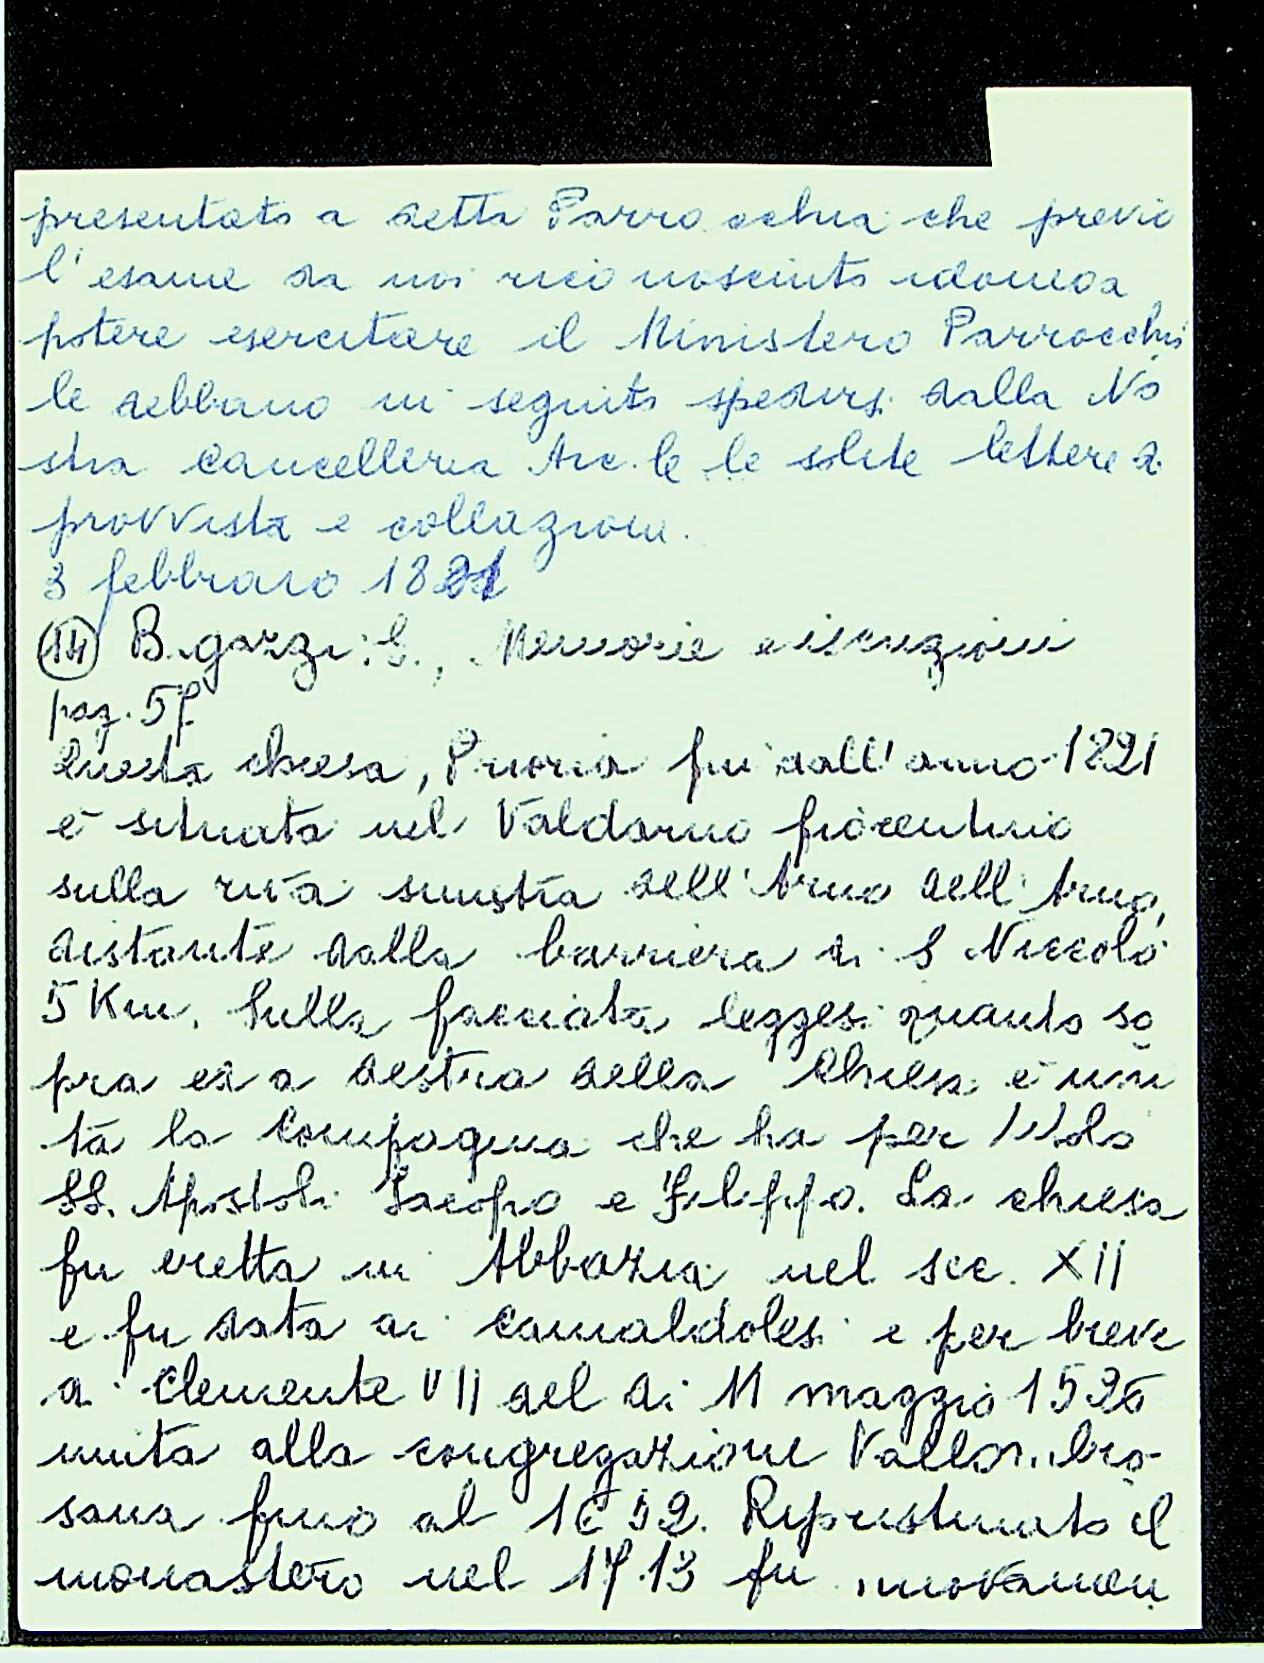 presentato a detta Parrocchia che previo
l'esame da noi riconosciuto idonea
potere esercitare il Ministero Parrocchia
le debbano in seguito spedirsi dalla No
stra Cancelleria Arc.le le solite lettere di
provvista e collazioni.
3 febbraio 1821
(14) Bigazzi: I., Memorie e iscrizioni
pag. 57
Questa chiesa, Prioria fin dall'anno 1821
è situata nel Valdarno fiorentino
sulla riva sinistra dell'Arno dell'Arno,
distante dalla barriera di S Niccolò
5 Km. Sulla facciata leggesi quanto so
pra ed a destra della Chiesa è uni
ta la Compagnia che ha per titolo
SS. Apostoli Iacopo e Filippo. La chiesa
fu eretta in Abbazia nel sec. XII
e fu data ai Camaldolesi e per breve
di Clemente VII del di 11 maggio 1526
unita alla congregazione Vallombro-
sana fino al 1652. Ripristinato il
monastero nel 1713 fu innovamen